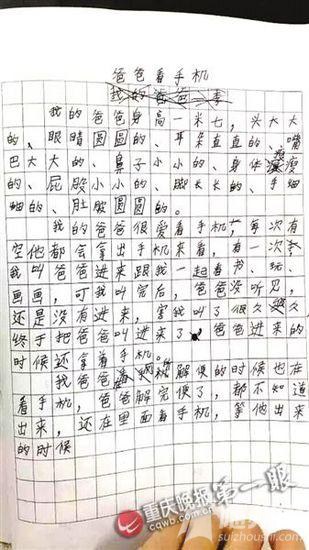 爸爸看手机
我的爸爸
我的爸爸身高一米七，头大大
的、眼睛圆圆的、耳朵直直的、嘴
巴大大的、鼻子小小的、身体瘦瘦
的、屁股小小的、脚长长的、手细
细的、肚殷圆圆的。
我的爸爸很爱看手机，每次有
空他都会拿出手机来看，有一次
我叫爸爸进来跟我一起看书、玩、
画画，可我叫完后，爸爸没听见，
还是没有进来，害我叫了很久，
终于把爸爸叫进来了，爸爸进来的
时候还拿着手机。
我爸爸解便的时候也在
看手机，爸爸解完便了，都不知道
出来，还在里面看手机，等他出来
的时候
重庆晚报第一眼
www.cqwb.com.cn
suizhoushi.com